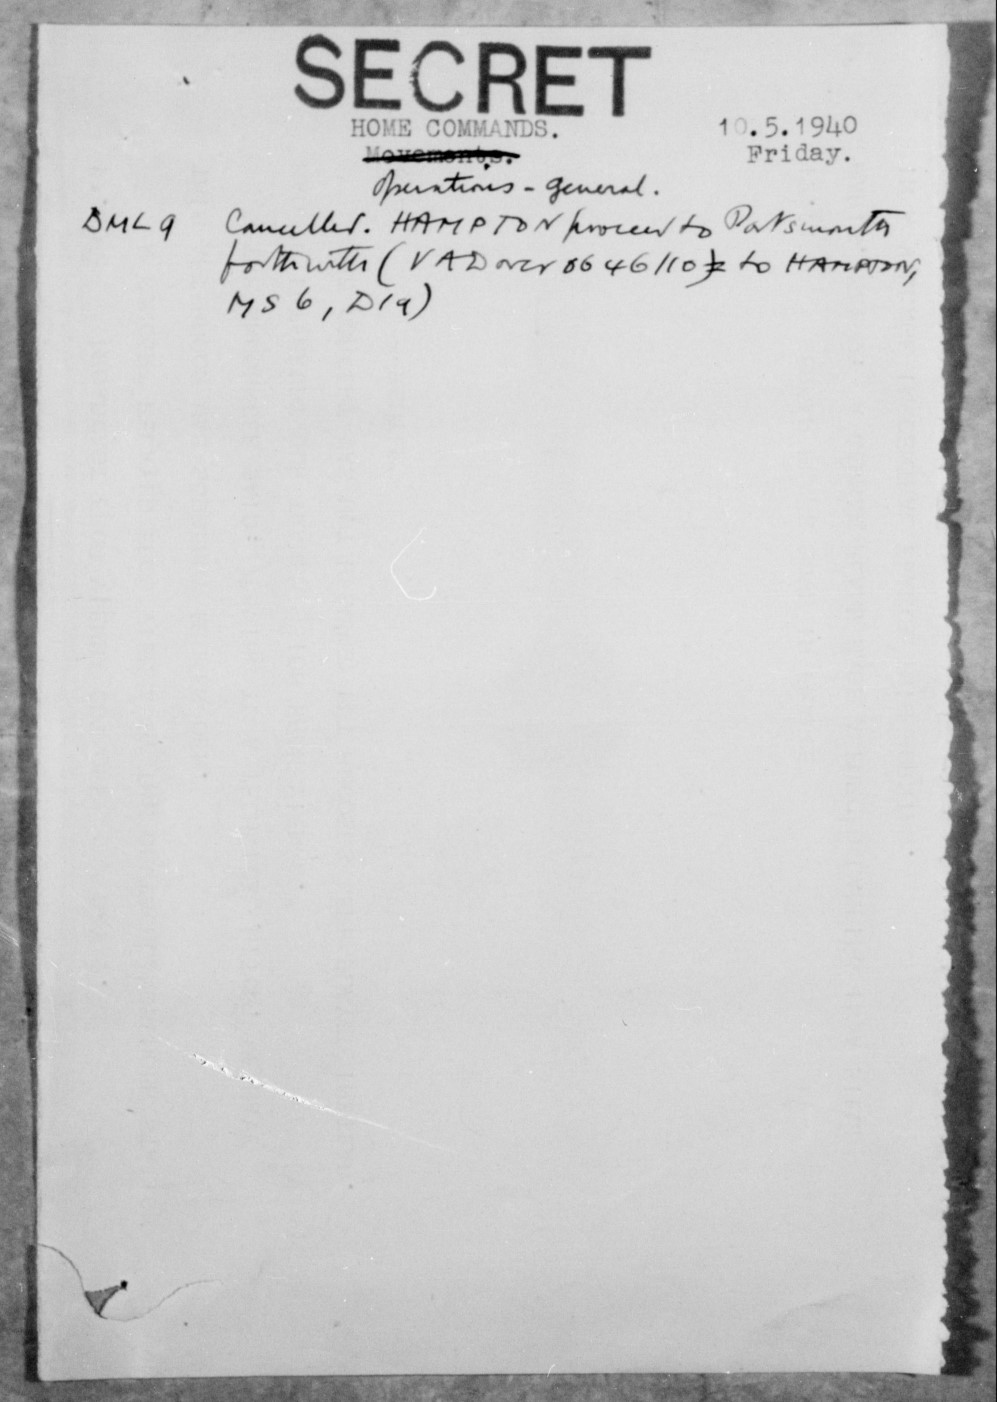 SECRET
HOME COMMANDS. 10.5.1940
Movements. Friday.
Operations - general.
DML 9 Cancelled. HAMPTON proceed to Portsmouth
forthwith (VADover 0646/10) to HAMPTON,
MS 6, D19)